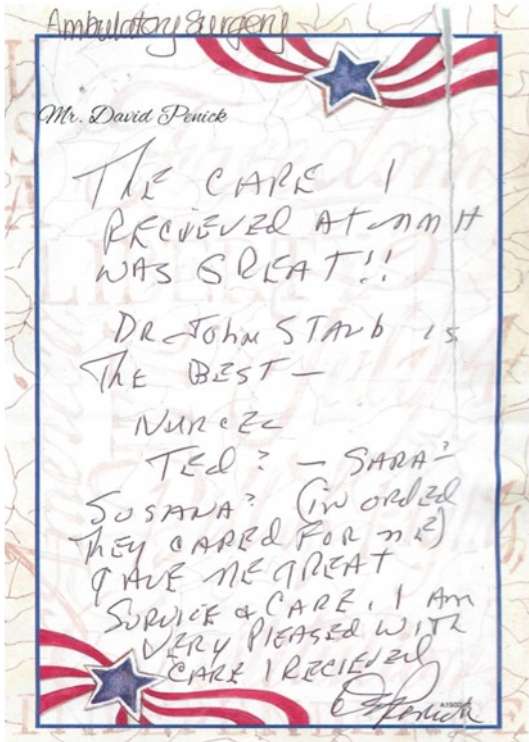 Ambulatory Surgery
Mr. David Penick
THE CARE I
RECIEVED AT MMH
WAS GREAT!!
DR JOHN STAUB IS
THE BEST —
NURCES
TED? — SARA? —
SUSANA? (IN ORDED
THEY CARED FOR ME)
GAVE ME GREAT
SURVICE & CARE. I AM
VERY PLEASED WITH
CARE I RECIEVED
Penick